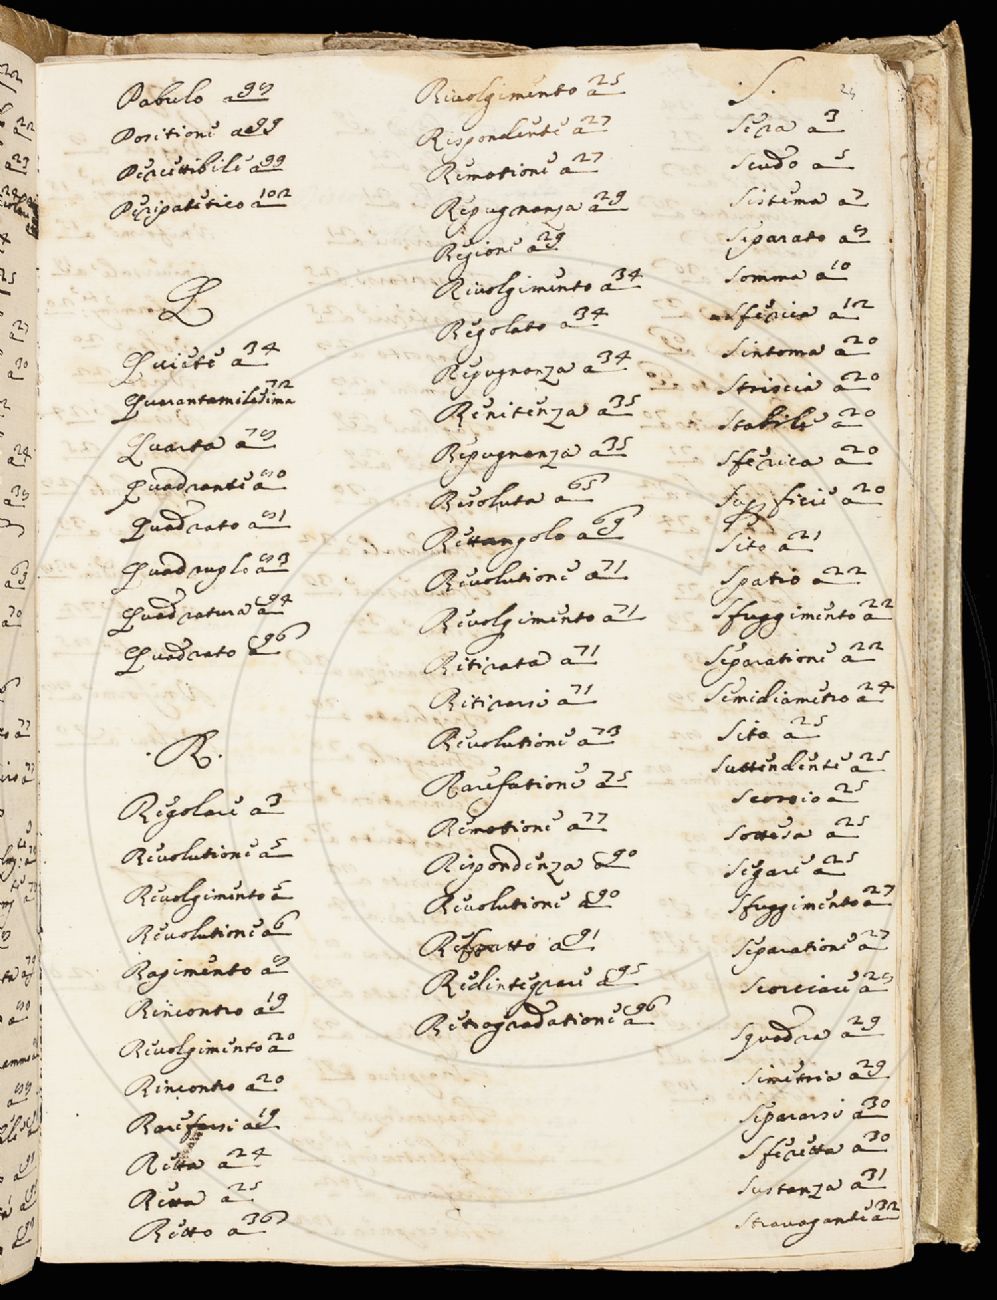 Pabulo a 98
Positione a 99
Percettibile a 99
Peripatetico a 102
Q
Quiete a 34
Quarantamilesima 72
Quarta a 78
Quadrante a 80
Quadrato a 81
Quadruplo a 83
Quadratura a 94
Quadrato a 96
.R.
Regolare a 3
Revolutione a 5
Rivolgimento a 5
Revolutione a 6
Ragimento a 8
Rincontro a 19
Rivolgimento a 20
Rincontro a 20
Rarefarsi a 19
Retta a 24
Retta a 25
Retto a 36
Rivolgimento a 25
Rispondente a 27
Remotione a 27
Repugnanza a 29
Regione a 29
Rivolgimento a 34
Regolato a 34
Repugnanza a 34
Renitenza a 35
Repugnanza a 35
Resoluta a 65
Rettangolo a 69
Revolutione a 71
Rivolgimento a 71
Ritirata a 71
Ritirarsi a 71
Revolutione a 73
Rarefatione a 75
Remotione a 77
Rispondenza a 90
Revolutione a 90
Respetto a 91
Redintegrare a 95
Retrogradatione a 96
.S. 24
Sera a 3
Scudo a 5
Sistema a 7
Separato a 8
Somma a 10
Sferica a 12
Sintoma a 20
Striscia a 20
Stabile a 20
Sferica a 20
Superficie a 20
Sito a 21
Spatio a 22
Sfuggimento a 22
Separatione a 22
Semidiametro a 24
Sito a 25
Suttendente a 25
Scorcio a 25
Sottesa a 25
Segare a 25
Sfuggimento a 27
Separatione a 27
Scorciare a 28
Squadra a 29
Simetria a 29
Separarsi a 30
Sferetta a 30
Sustanza a 31
Stravagante a 32